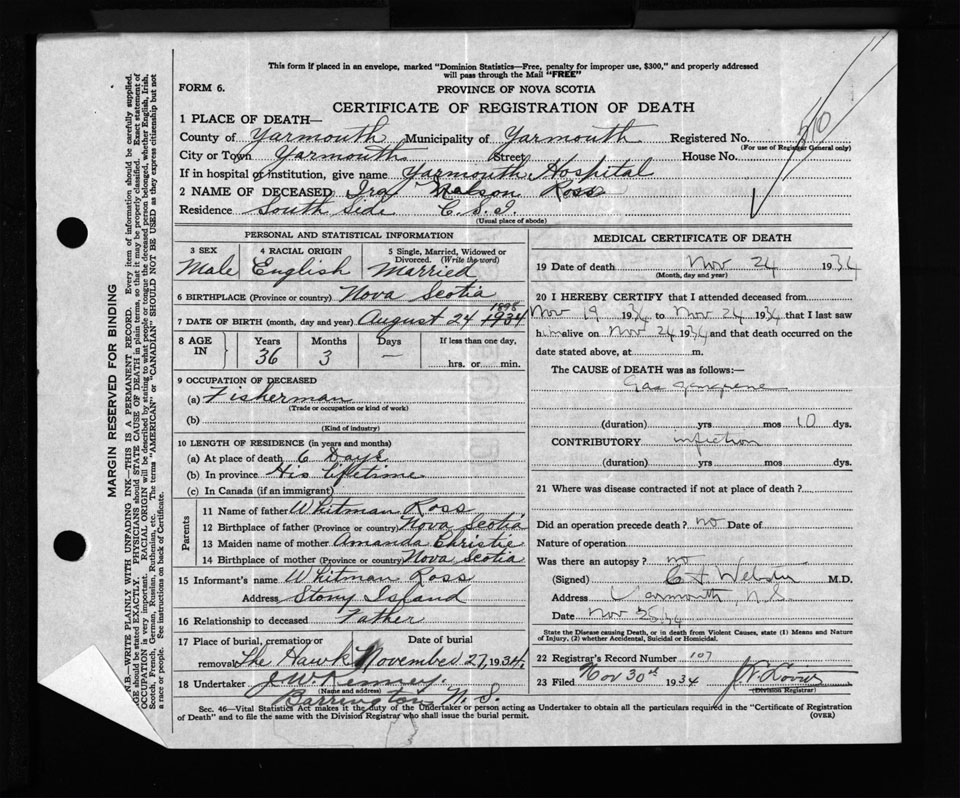 This form if placed in an envelope, marked "Dominion Statistics—Free, penalty for improper use, $300," and properly addressed
will pass through the Mail "FREE"
FORM 6.
PROVINCE OF NOVA SCOTIA
CERTIFICATE OF REGISTRATION OF DEATH
1 PLACE OF DEATH—
County of Yarmouth Municipality of Yarmouth Registered No. 510
(For use of Registrar General only)
City or Town Yarmouth Street House No.
If in hospital or institution, give name Yarmouth Hospital
2 NAME OF DECEASED Ira Nelson Ross
Residence South Side C.S.I.
(Usual place of abode)
PERSONAL AND STATISTICAL INFORMATION
3 SEX 4 RACIAL ORIGIN 5 Single, Married, Widowed or Divorced. (Write the word)
Male English Married
6 BIRTHPLACE (Province or country) Nova Scotia
1898
7 DATE OF BIRTH (month, day and year) August 24 1934
8 AGE IN Years Months Days If less than one day,
36 3 — hrs. or min.
9 OCCUPATION OF DECEASED
(a) Fisherman
(Trade or occupation or kind of work)
(b)
(Kind of industry)
10 LENGTH OF RESIDENCE (in years and months)
(a) At place of death 6 Days
(b) In province His lifetime
(c) In Canada (if an immigrant)
Parents
11 Name of father Whitman Ross
12 Birthplace of father (Province or country) Nova Scotia
13 Maiden name of mother Amanda Christie
14 Birthplace of mother (Province or country) Nova Scotia
15 Informant's name Whitman Ross
Address Stony Island
16 Relationship to deceased Father
17 Place of burial, cremation or Date of burial
removal The Hawk November 27, 1934
18 Undertaker J. W. Kenney.
(Name and address)
Barrington N. S.
MEDICAL CERTIFICATE OF DEATH
19 Date of death Nov 24 1934
(Month, day and year)
20 I HEREBY CERTIFY that I attended deceased from
Nov 19 1934 to Nov 24 1934 that I last saw
him alive on Nov 24 1934 and that death occurred on the
date stated above, at m.
The CAUSE of DEATH was as follows:—
Gas gangrene
(duration) yrs mos 10 dys.
CONTRIBUTORY infection
(duration) yrs. mos. dys.
21 Where was disease contracted if not at place of death?
Did an operation precede death? no Date of
Nature of operation
Was there an autopsy? no
(Signed) Webster M.D.
Address Yarmouth, N.S.
Date Nov 25.34
State the Disease causing Death, or in death from Violent Causes, state (1) Means and Nature
of Injury, (2) whether Accidental, Suicidal or Homicidal.
22 Registrar's Record Number 107
23 Filed Nov 30th 1934
(Division Registrar)
Sec. 46—Vital Statistics Act makes it the duty of the Undertaker or person acting as Undertaker to obtain all the particulars required in the "Certificate of Registration
of Death" and to file the same with the Division Registrar who shall issue the burial permit. (OVER)
MARGIN RESERVED FOR BINDING
N.B.—WRITE PLAINLY WITH UNFADING INK—THIS IS A PERMANENT RECORD. Every item of information should be carefully supplied.
AGE should be stated EXACTLY. PHYSICIANS should STATE CAUSE OF DEATH in plain terms, so that it may be properly classified. Exact statement of
OCCUPATION is very important. RACIAL ORIGIN will be described by stating to what people or tongue the deceased person belonged, whether English, Irish,
Scotch, French, German, Russian, Ruthenian, etc. The terms "AMERICAN" or "CANADIAN" SHOULD NOT BE USED as they express citizenship but not
a race or people. See instructions on back of Certificate.